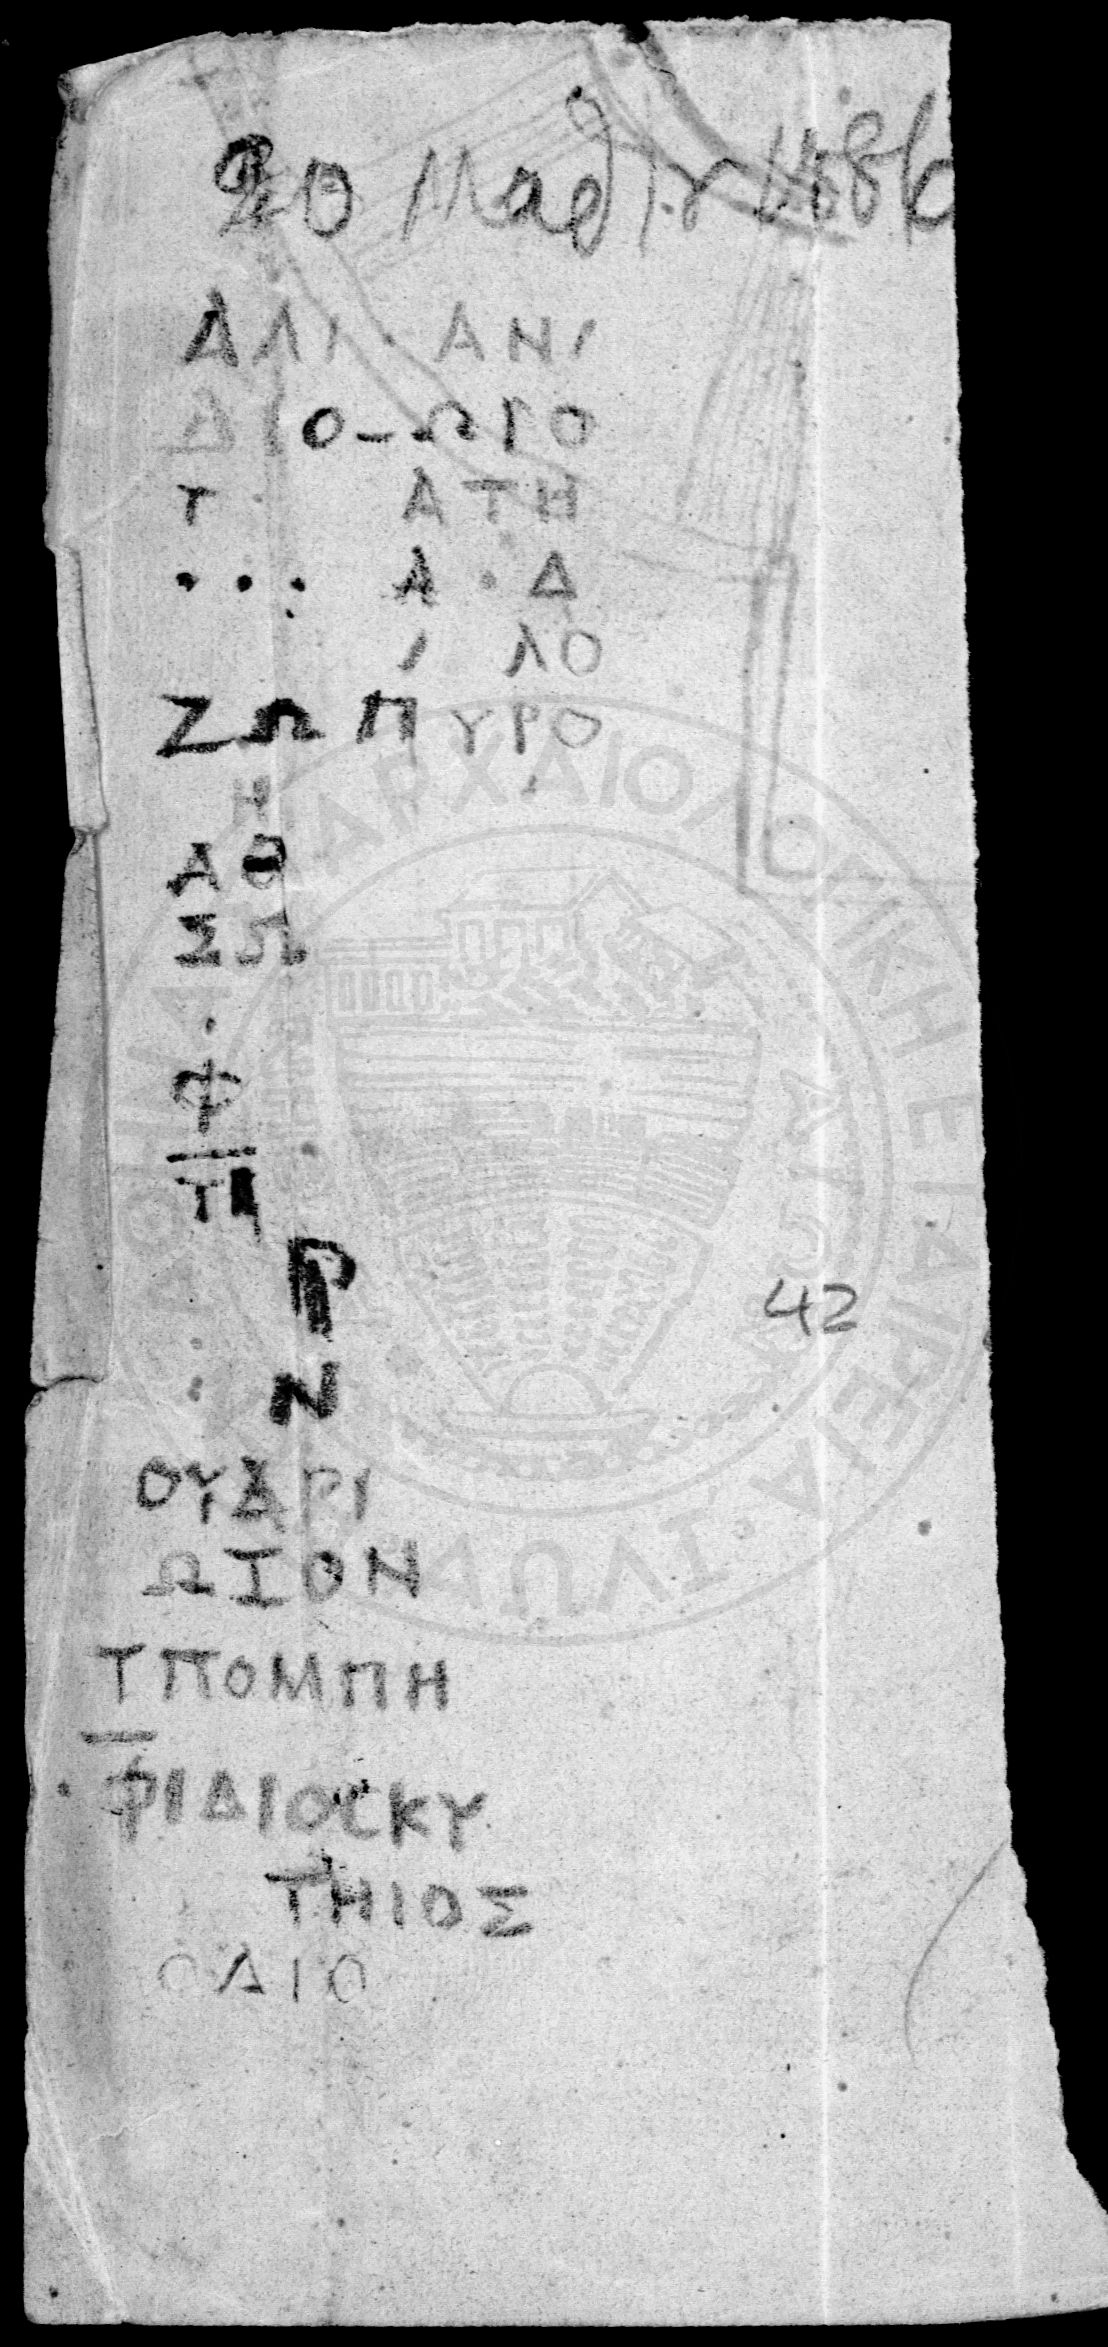 20 Μαΐου 1886
ΑΛΙ . ΑΝΙ
ΔΙΟ–ΩΙΟ
Τ ΑΤΗ
... Α . Δ
Ι ΛΟ
ΖΩΠΥΡΟ
Η
ΑΘ
ΣΩ
.
Φ
ΤΙ
Ρ
42
Ν
ΟΥΑΡΙ
ΩΙΟΝ
ΤΠΟΜΠΗ
. ΦΙΔΙΟCΚΥ
ΤΗΙΟΣ
ΟΔΙΟ
ΑΡΧΑΙΟΛΟΓΙΚΗ ΕΤΑΙΡΕΙΑ